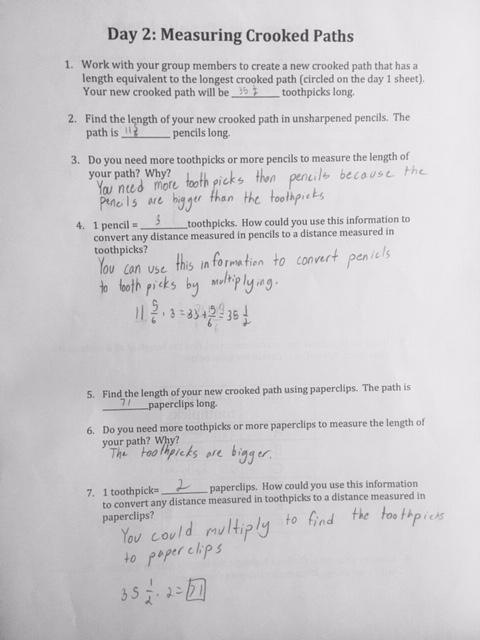 Day 2: Measuring Crooked Paths
1. Work with your group members to create a new crooked path that has a
length equivalent to the longest crooked path (circled on the day 1 sheet).
Your new crooked path will be 35 ½ toothpicks long.
2. Find the length of your new crooked path in unsharpened pencils. The
path is 11 pencils long.
3. Do you need more toothpicks or more pencils to measure the length of
your path? Why?
You need more tooth picks than pencils because the
pencils are bigger than the toothpicks
4. 1 pencil = 3 toothpicks. How could you use this information to
convert any distance measured in pencils to a distance measured in
toothpicks?
You can use this information to convert penicls
to tooth picks by multiplying.
11 5/6 · 3 = 33 + = 35 1/2
5. Find the length of your new crooked path using paperclips. The path is
71 paperclips long.
6. Do you need more toothpicks or more paperclips to measure the length of
your path? Why?
The toothpicks are bigger.
7. 1 toothpick= 2 paperclips. How could you use this information
to convert any distance measured in toothpicks to a distance measured in
paperclips?
You could multiply to find the toothpicks
to paper clips
35 1/2 · 2 = 71